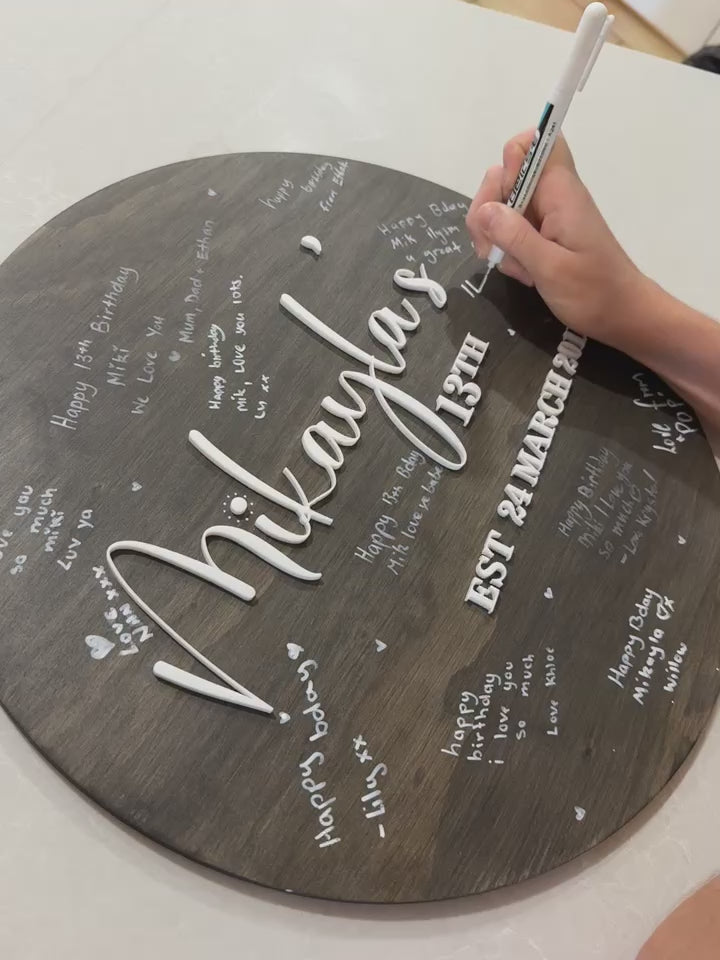 Mikayla's
13TH
EST 24 MARCH 201
happy birthday
from Ethan
Happy Bday
Mik ilysm
u great
Happy 13th Birthday
Miki
We Love You
Mum, Dad + Ethan
Happy birthday
Mik, Love you lots.
xx
Happy 13th Bday
Mik love ya babe
you
so much
miki
Luv ya
LOVE
NAN xxx
Happy bday
- Lily xx
happy
birthday
i love you
so much
Love Khloe
Happy Birthday
Miki! I love you
so much
- Love
Happy Bday
Mikayla
Willow
love from